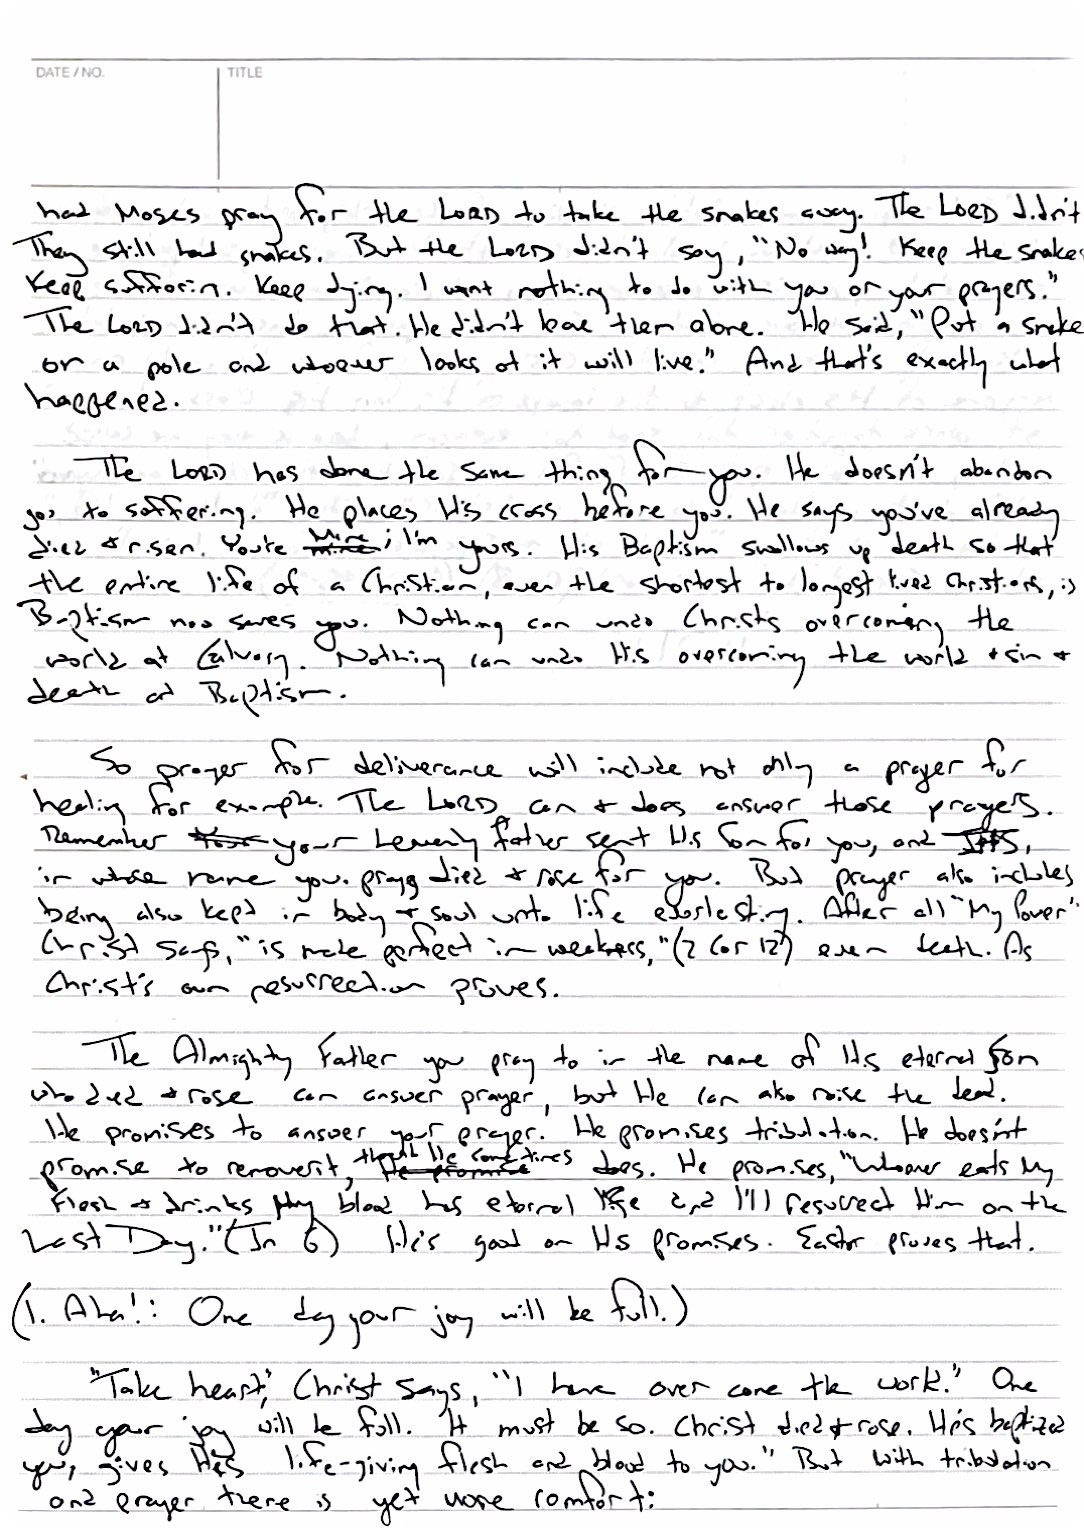 DATE / NO. TITLE
had Moses pray for the LORD to take the snakes away. The LORD didn't
They still had snakes. But the LORD didn't say, "No way! Keep the snakes
Keep sufferin. Keep dying. I want nothing to do with you or your prayers."
The LORD didn't do that. He didn't leave them alone. He said, "Put a snake
on a pole and whoever looks at it will live." And that's exactly what
happened.
The LORD has done the same thing for you. He doesn't abandon
you to suffering. He places His cross before you. He says you've already
died & risen. You're Mine; I'm yours. His Baptism swallows up death so that
the entire life of a Christian, even the shortest to longest lived Christians, is
Baptism now saves you. Nothing can undo Christs overcoming the
world at Calvary. Nothing can undo His overcoming the world & sin &
death at Baptism.
So prayer for deliverance will include not only a prayer for
healing for example. The LORD can & does answer those prayers.
Remember your heavenly father sent His Son for you, and
in whose name you pray died & rose for you. But prayer also includes
being also kept in body & soul unto life everlasting. After all "My Power"
Christ says, "is made perfect in weakness," (2 Cor 12) even death. As
Christ's own resurrection proves.
The Almighty Father you pray to in the name of His eternal Son
who died & rose can answer prayer, but He can also raise the dead.
He promises to answer your prayer. He promises tribulation. He doesn't
promise to remove it, though He sometimes does. He promises, "Whoever eats My
Flesh & drinks My blood has eternal life and I'll resurrect Him on the
Last Day." (Jn 6) He's good on His promises. Easter proves that.
(1. Aha!: One day your joy will be full.)
"Take heart," Christ says, "I have over come the world." One
day your joy will be full. It must be so. Christ died & rose. He's baptized
you, gives His life-giving flesh and blood to you." But with tribulation
and prayer there is yet more comfort: